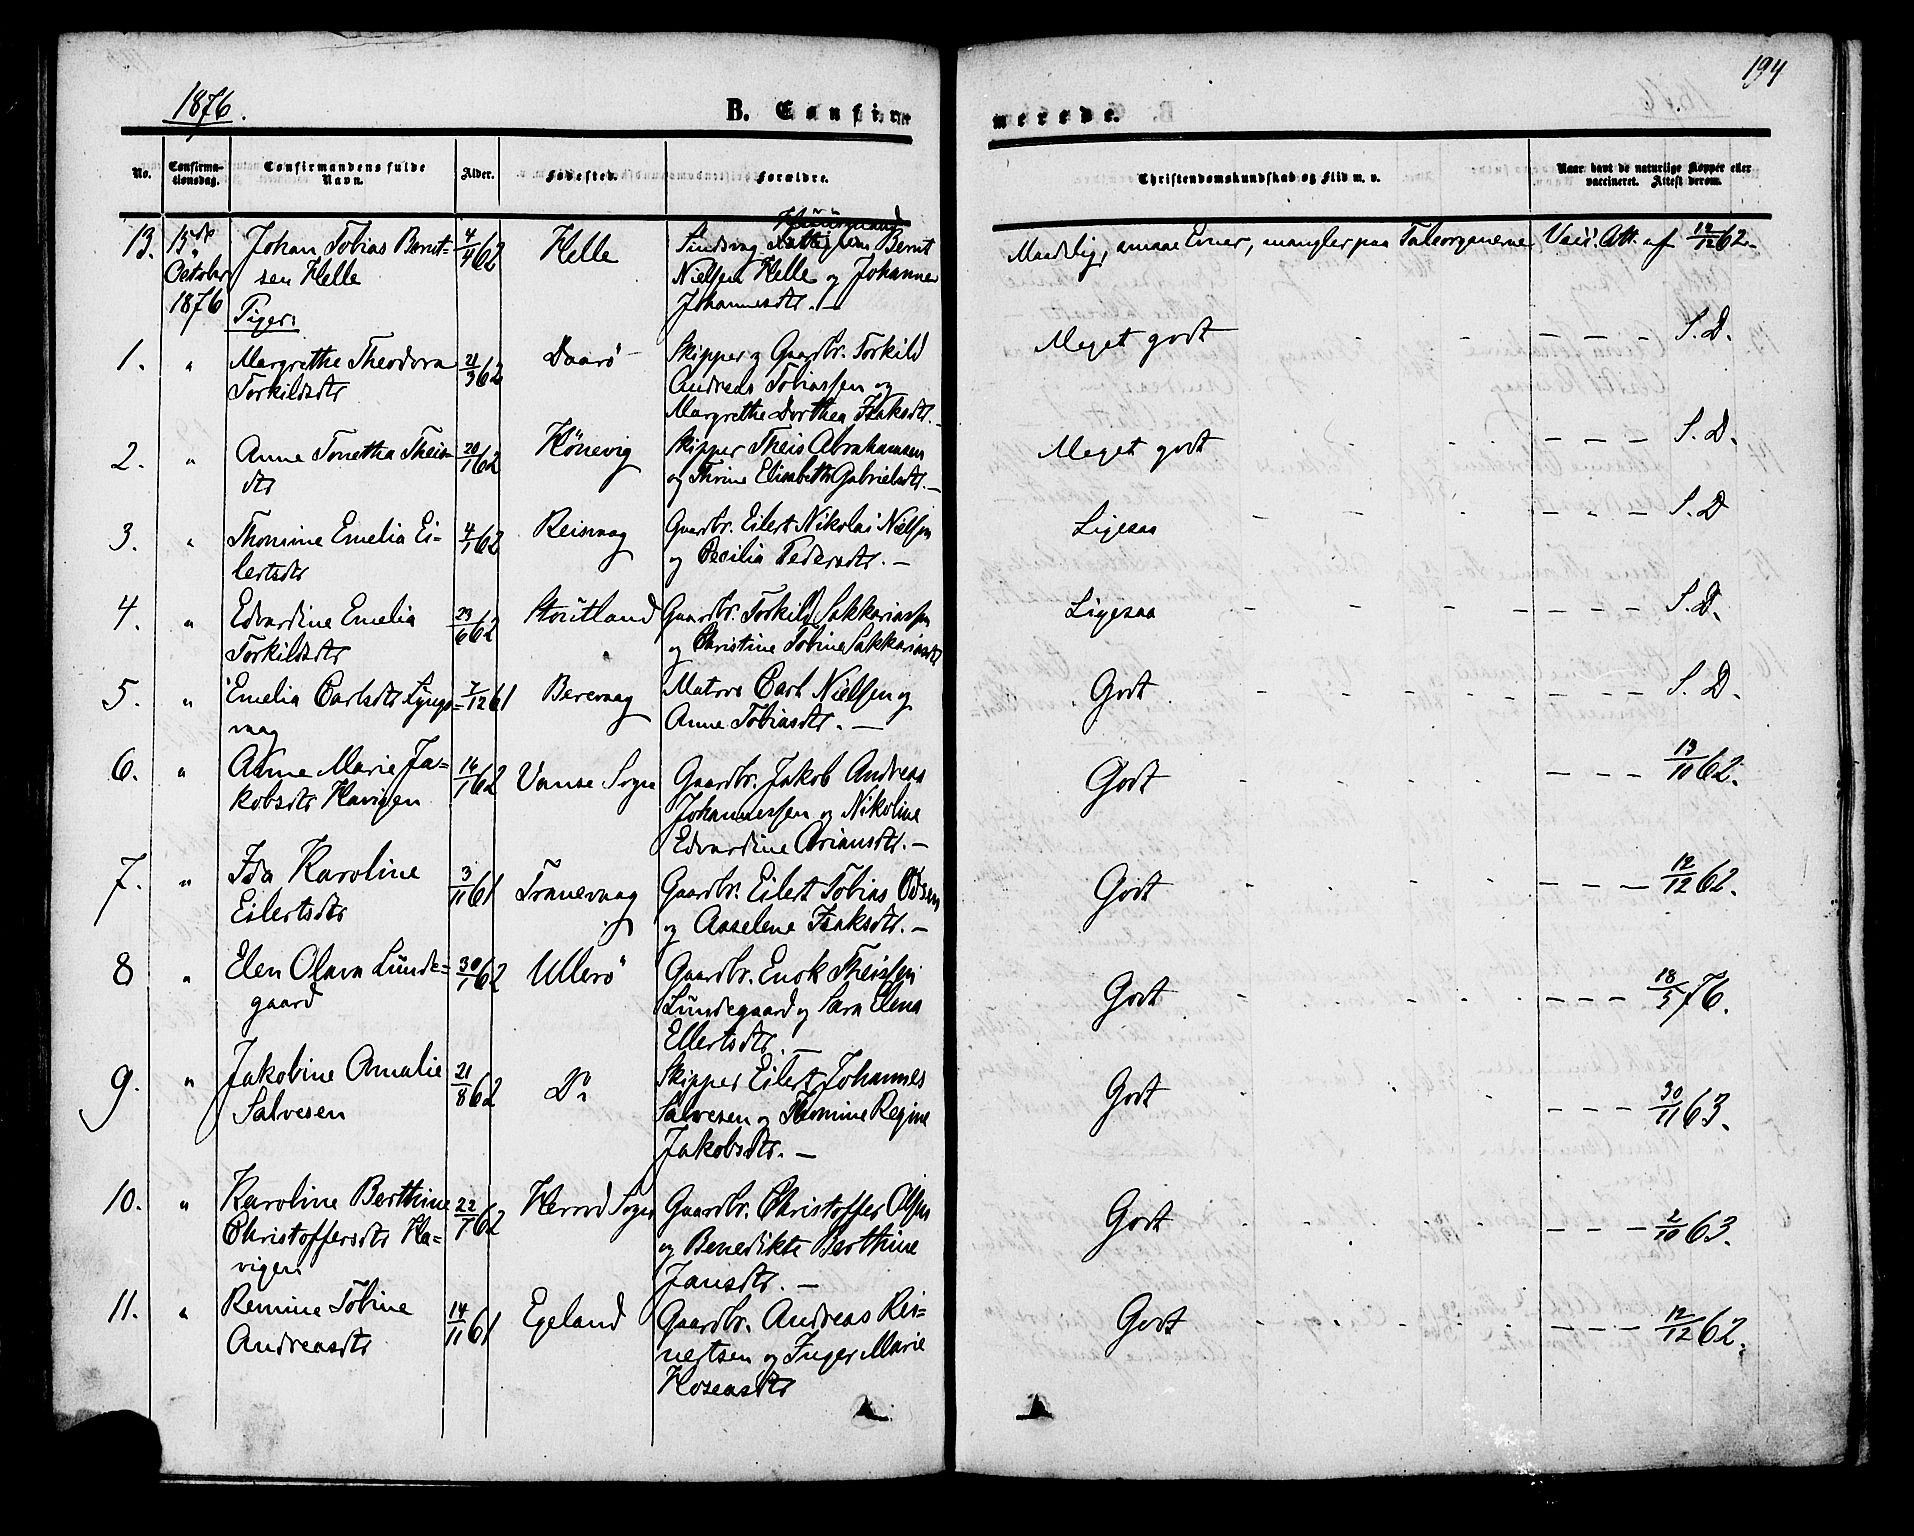 1876.
194
B. Confirmerede.
No.
Confirmationsdag.
Confirmandens fulde Navn.
Alder.
Fødested.
Forældre.
Christendomskundskab og Flid m. v.
Naar havt de naturlige Kopper eller vaccineret. Attest derom.
13. 15de October 1876
Johan Tobias Berntsen Helle
4/4 62
Helle
Sindsvag Bernt Nielsen Helle og Johanne Johannesdtr. —
Maadelig, smaae Evner, mangler paa Taleorganerne
Vacc. Att. af 12/12 62.
Piger:
1. "
Margrethe Theodora Torkildsdtr
21/3 62
Daarø
Skipper og Gaardbr. Torkild Andreas Tobiassen og Margrethe Dorthea Isaksdtr. —
Meget godt
— — — S. D.
2. "
Anne Tonetha Theisdtr
20/1 62
Kønevig
Skipper Theis Abrahamsen og Thrine Elisabeth Gabrielsdtr. —
Meget godt
— — — S. D.
3. "
Thomine Emelia Eilertsdtr
4/1 62
Reisvaag
Gaardbr. Eilert Nikolai Nielsen og Cecilia Pedersdtr. —
Ligesaa
— — — S. D
4. "
Edvardine Emelia Torkildsdtr
23/6 62
Stoutland
Gaardbr. Torkild Sakkariassen og Christine Tobine Sakkariasdtr
Ligesaa
— — — S. D.
5. "
Emelia Carlsdtr Lyngsvaag
7/12 61
Berevaag
Matros Carl Nielsen og Anne Tobiasdtr. —
Godt
— — — S. D.
6. "
Anne Marie Jakobsdtr Havigen
16/1 62
Vanse Sogn
Gaardbr. Jakob Andreas Johannessen og Nikoline Edvardine Ariansdtr. —
Godt
— — — 13/10 62.
7. "
Ida Karoline Eilertsdtr
3/11 61
Tranevaag
Gaardbr. Eilert Tobias Odsen og Asselene Isaksdtr. —
Godt
— — — 12/12 62.
8 "
Elen Olava Lundegaard
30/1 62
Ullerø
Gaardbr. Enok Theissen Lundegaard og Sara Elena Ellertsdtr. —
Godt
— — — 18/5 76.
9. "
Jakobine Amalie Salvesen
21/8 62
Do
Skipper Eilert Johannes Salvesen og Thomine Regine Jakobsdtr. —
Godt
— — — 30/11 63.
10. "
Karoline Berthine Christoffersdtr Havigen
22/1 62
Herred Sogn
Gaardbr. Christoffer Olsen og Benedikte Berthine Jansdtr. —
Godt
— — — 2/10 63.
11. "
Remine Tobine Andreasdtr
14/11 61
Egeland
Gaardbr. Andreas Reinertsen og Inger Marie Hoseasdtr
Godt
— — — 12/12 62.